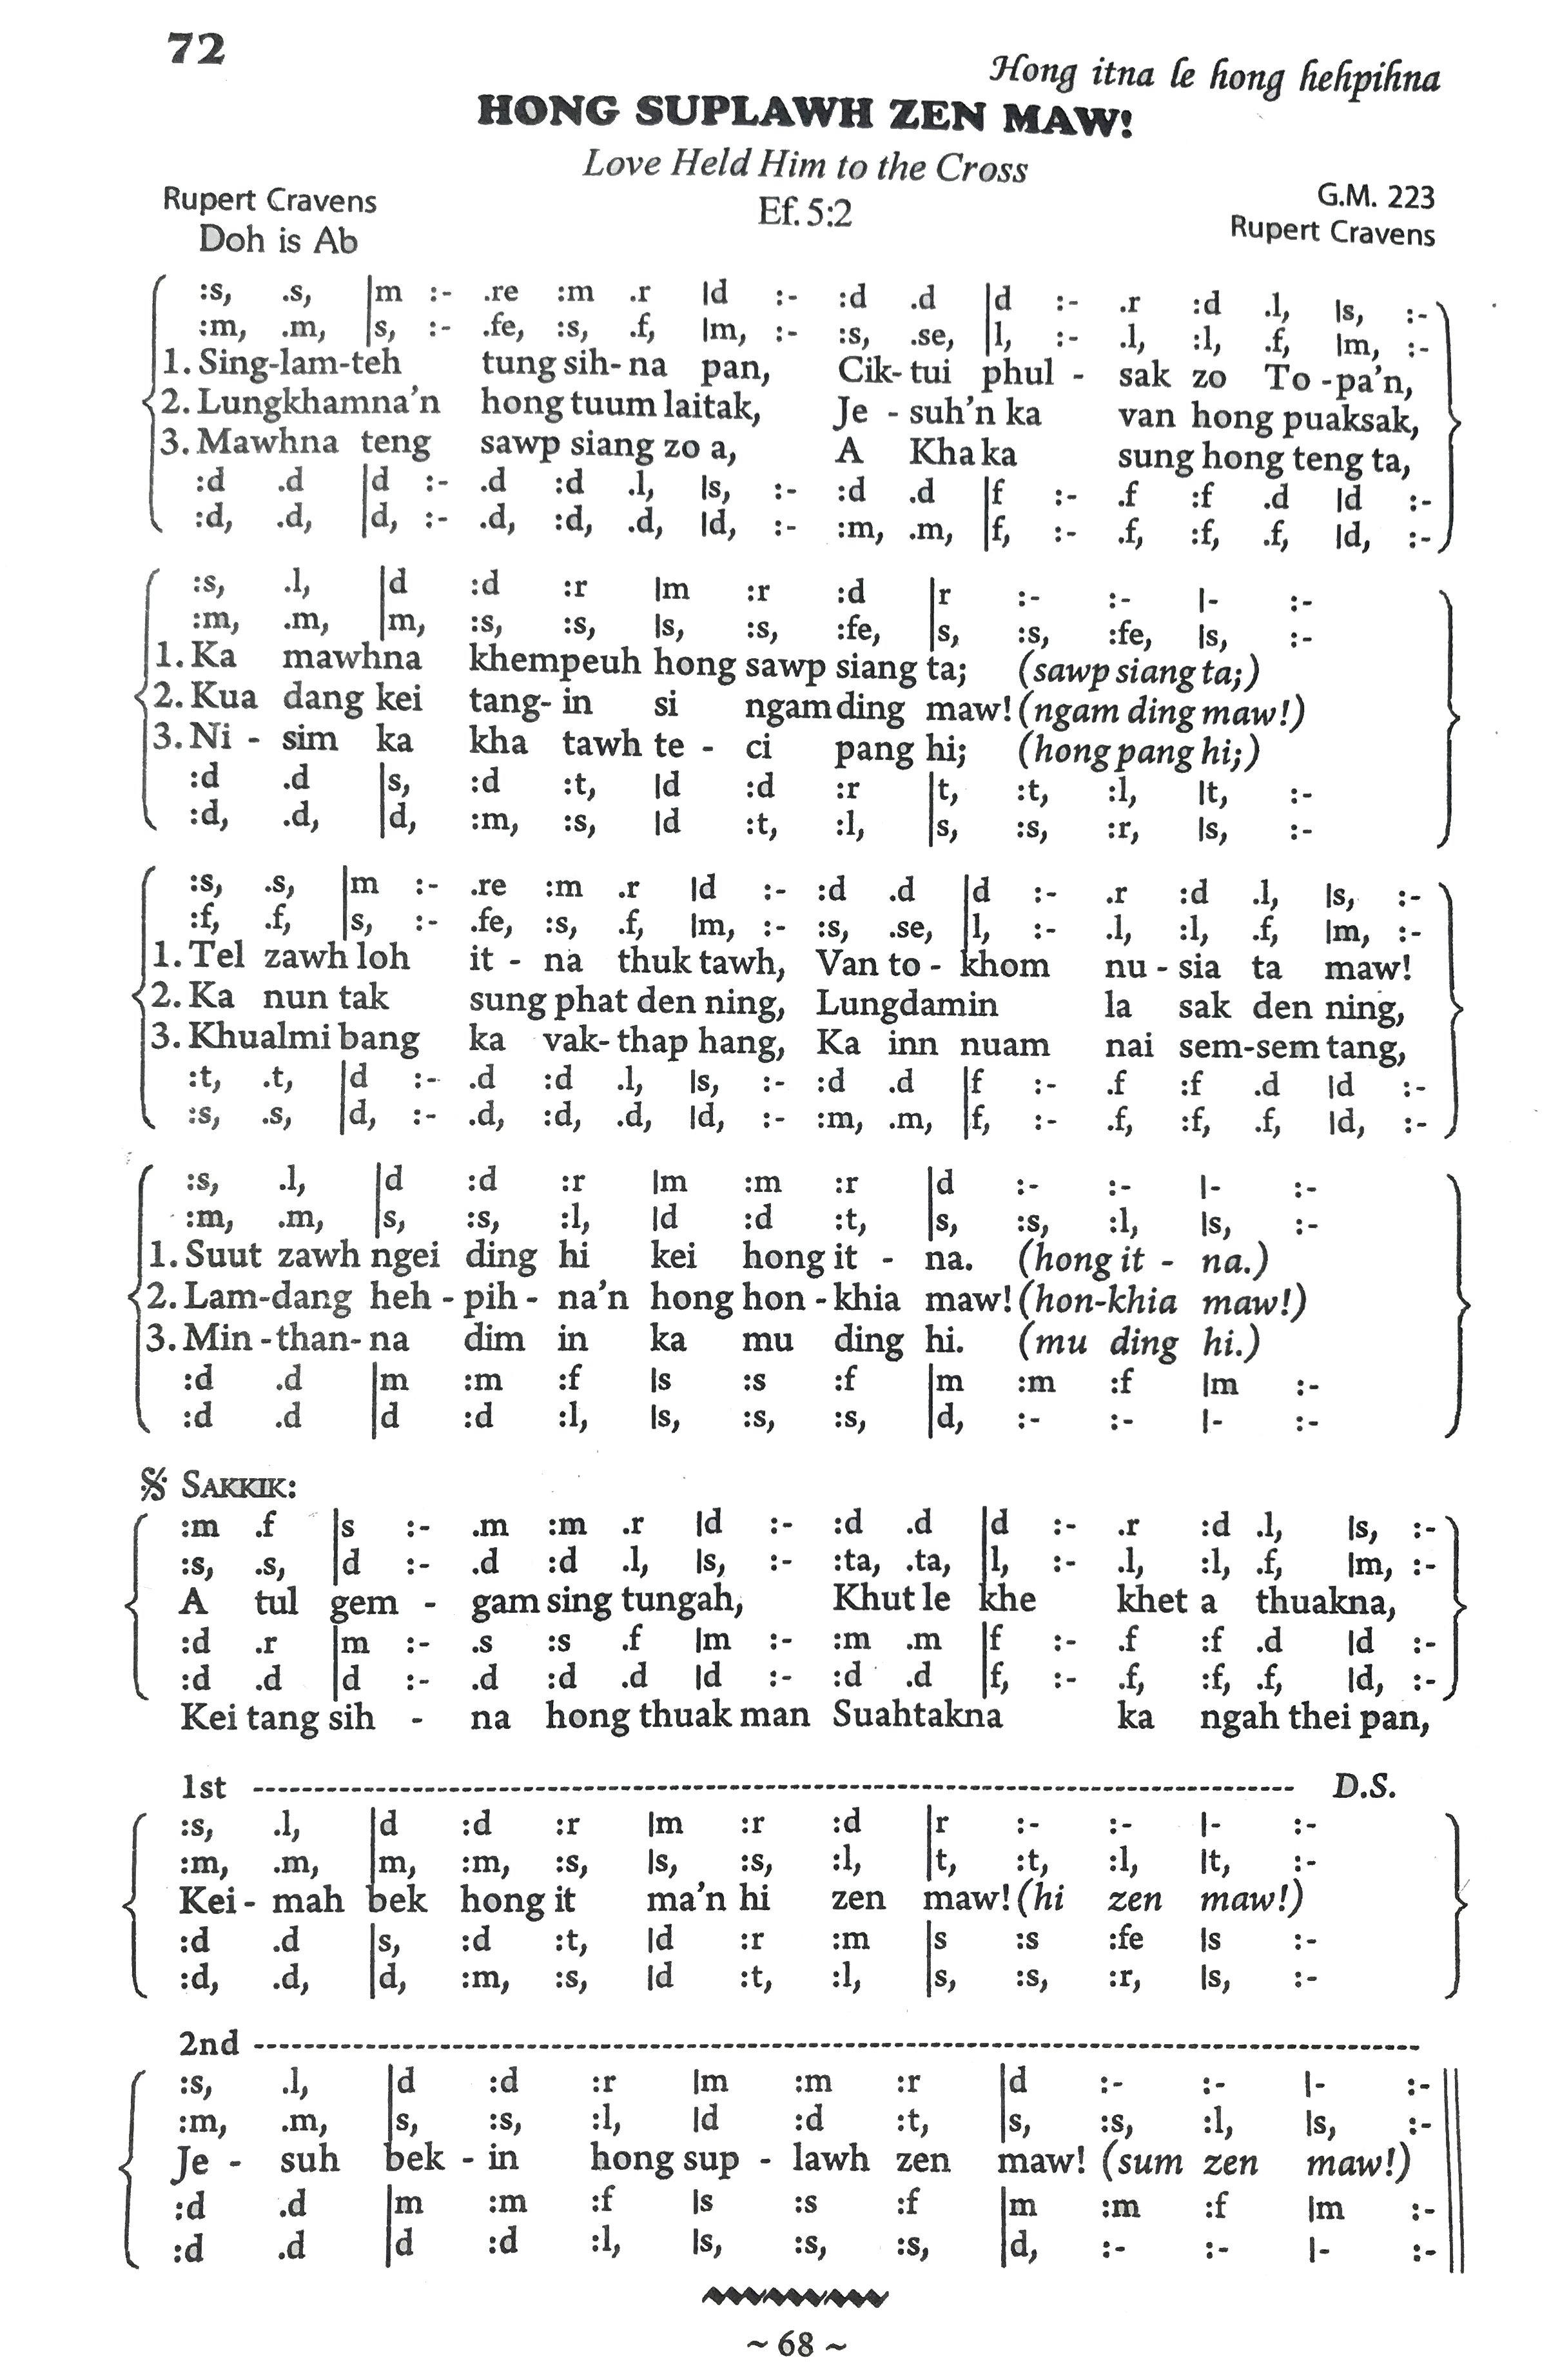 72
Hong itna le hong hehpihna
HONG SUPLAWH ZEN MAW!
Love Held Him to the Cross
Rupert Cravens Ef. 5:2 G.M. 223
Doh is Ab Rupert Cravens
:s, .s, |m :- .re :m .r |d :- :d .d |d :- .r :d .l, |s, :-
:m, .m, |s, :- .fe, :s, .f, |m, :- :s, .se, |l, :- .l, :l, .f, |m, :-
1. Sing-lam-teh tung sih-na pan, Cik-tui phul - sak zo To-pa'n,
2. Lungkhamna'n hong tuum laitak, Je - suh'n ka van hong puaksak,
3. Mawhna teng sawp siang zo a, A Kha ka sung hong teng ta,
:d .d |d :- .d :d .l, |s, :- :d .d |f :- .f :f .d |d :-
:d, .d, |d, :- .d, :d, .d, |d, :- :m, .m, |f, :- .f, :f, .f, |d, :-
:s, .l, |d :d :r |m :r :d |r :- :- |- :-
:m, .m, |m, :s, :s, |s, :s, :fe, |s, :s, :fe, |s, :-
1. Ka mawhna khempeuh hong sawp siang ta; (sawp siang ta;)
2. Kua dang kei tang- in si ngam ding maw! (ngam ding maw!)
3. Ni - sim ka kha tawh te - ci pang hi; (hong pang hi;)
:d .d |s, :d :t, |d :d :r |t, :t, :l, |t, :-
:d, .d, |d, :m, :s, |d :t, :l, |s, :s, :r, |s, :-
:s, .s, |m :- .re :m .r |d :- :d .d |d :- .r :d .l, |s, :-
:f, .f, |s, :- .fe, :s, .f, |m, :- :s, .se, |l, :- .l, :l, .f, |m, :-
1. Tel zawh loh it - na thuk tawh, Van to - khom nu - sia ta maw!
2. Ka nun tak sung phat den ning, Lungdamin la sak den ning,
3. Khualmi bang ka vak-thap hang, Ka inn nuam nai sem-sem tang,
:t, .t, |d :- .d :d .l, |s, :- :d .d |f :- .f :f .d |d :-
:s, .s, |d, :- .d, :d, .d, |d, :- :m, .m, |f, :- .f, :f, .f, |d, :-
:s, .l, |d :d :r |m :m :r |d :- :- |- :-
:m, .m, |s, :s, :l, |d :d :t, |s, :s, :l, |s, :-
1. Suut zawh ngei ding hi kei hong it - na. (hong it - na.)
2. Lam-dang heh - pih - na'n hong hon - khia maw! (hon-khia maw!)
3. Min -than- na dim in ka mu ding hi. (mu ding hi.)
:d .d |m :m :f |s :s :f |m :m :f |m :-
:d .d |d :d :l, |s, :s, :s, |d, :- :- |- :-
SAKKIK:
:m .f |s :- .m :m .r |d :- :d .d |d :- .r :d .l, |s, :-
:s, .s, |d :- .d :d .l, |s, :- :ta, .ta, |l, :- .l, :l, .f, |m, :-
A tul gem - gam sing tungah, Khut le khe khet a thuakna,
:d .r |m :- .s :s .f |m :- :m .m |f :- .f :f .d |d :-
:d .d |d :- .d :d .d |d :- :d .d |f, :- .f, :f, .f, |d, :-
Kei tang sih - na hong thuak man Suahtakna ka ngah thei pan,
1st D.S.
:s, .l, |d :d :r |m :r :d |r :- :- |- :-
:m, .m, |m, :m, :s, |s, :s, :l, |t, :t, :l, |t, :-
Kei - mah bek hong it ma'n hi zen maw! (hi zen maw!)
:d .d |s, :d :t, |d :r :m |s :s :fe |s :-
:d, .d, |d, :m, :s, |d :t, :l, |s, :s, :r, |s, :-
2nd
:s, .l, |d :d :r |m :m :r |d :- :- |- :-
:m, .m, |s, :s, :l, |d :d :t, |s, :s, :l, |s, :-
Je - suh bek - in hong sup - lawh zen maw! (sum zen maw!)
:d .d |m :m :f |s :s :f |m :m :f |m :-
:d .d |d :d :l, |s, :s, :s, |d, :- :- |- :-
~ 68 ~